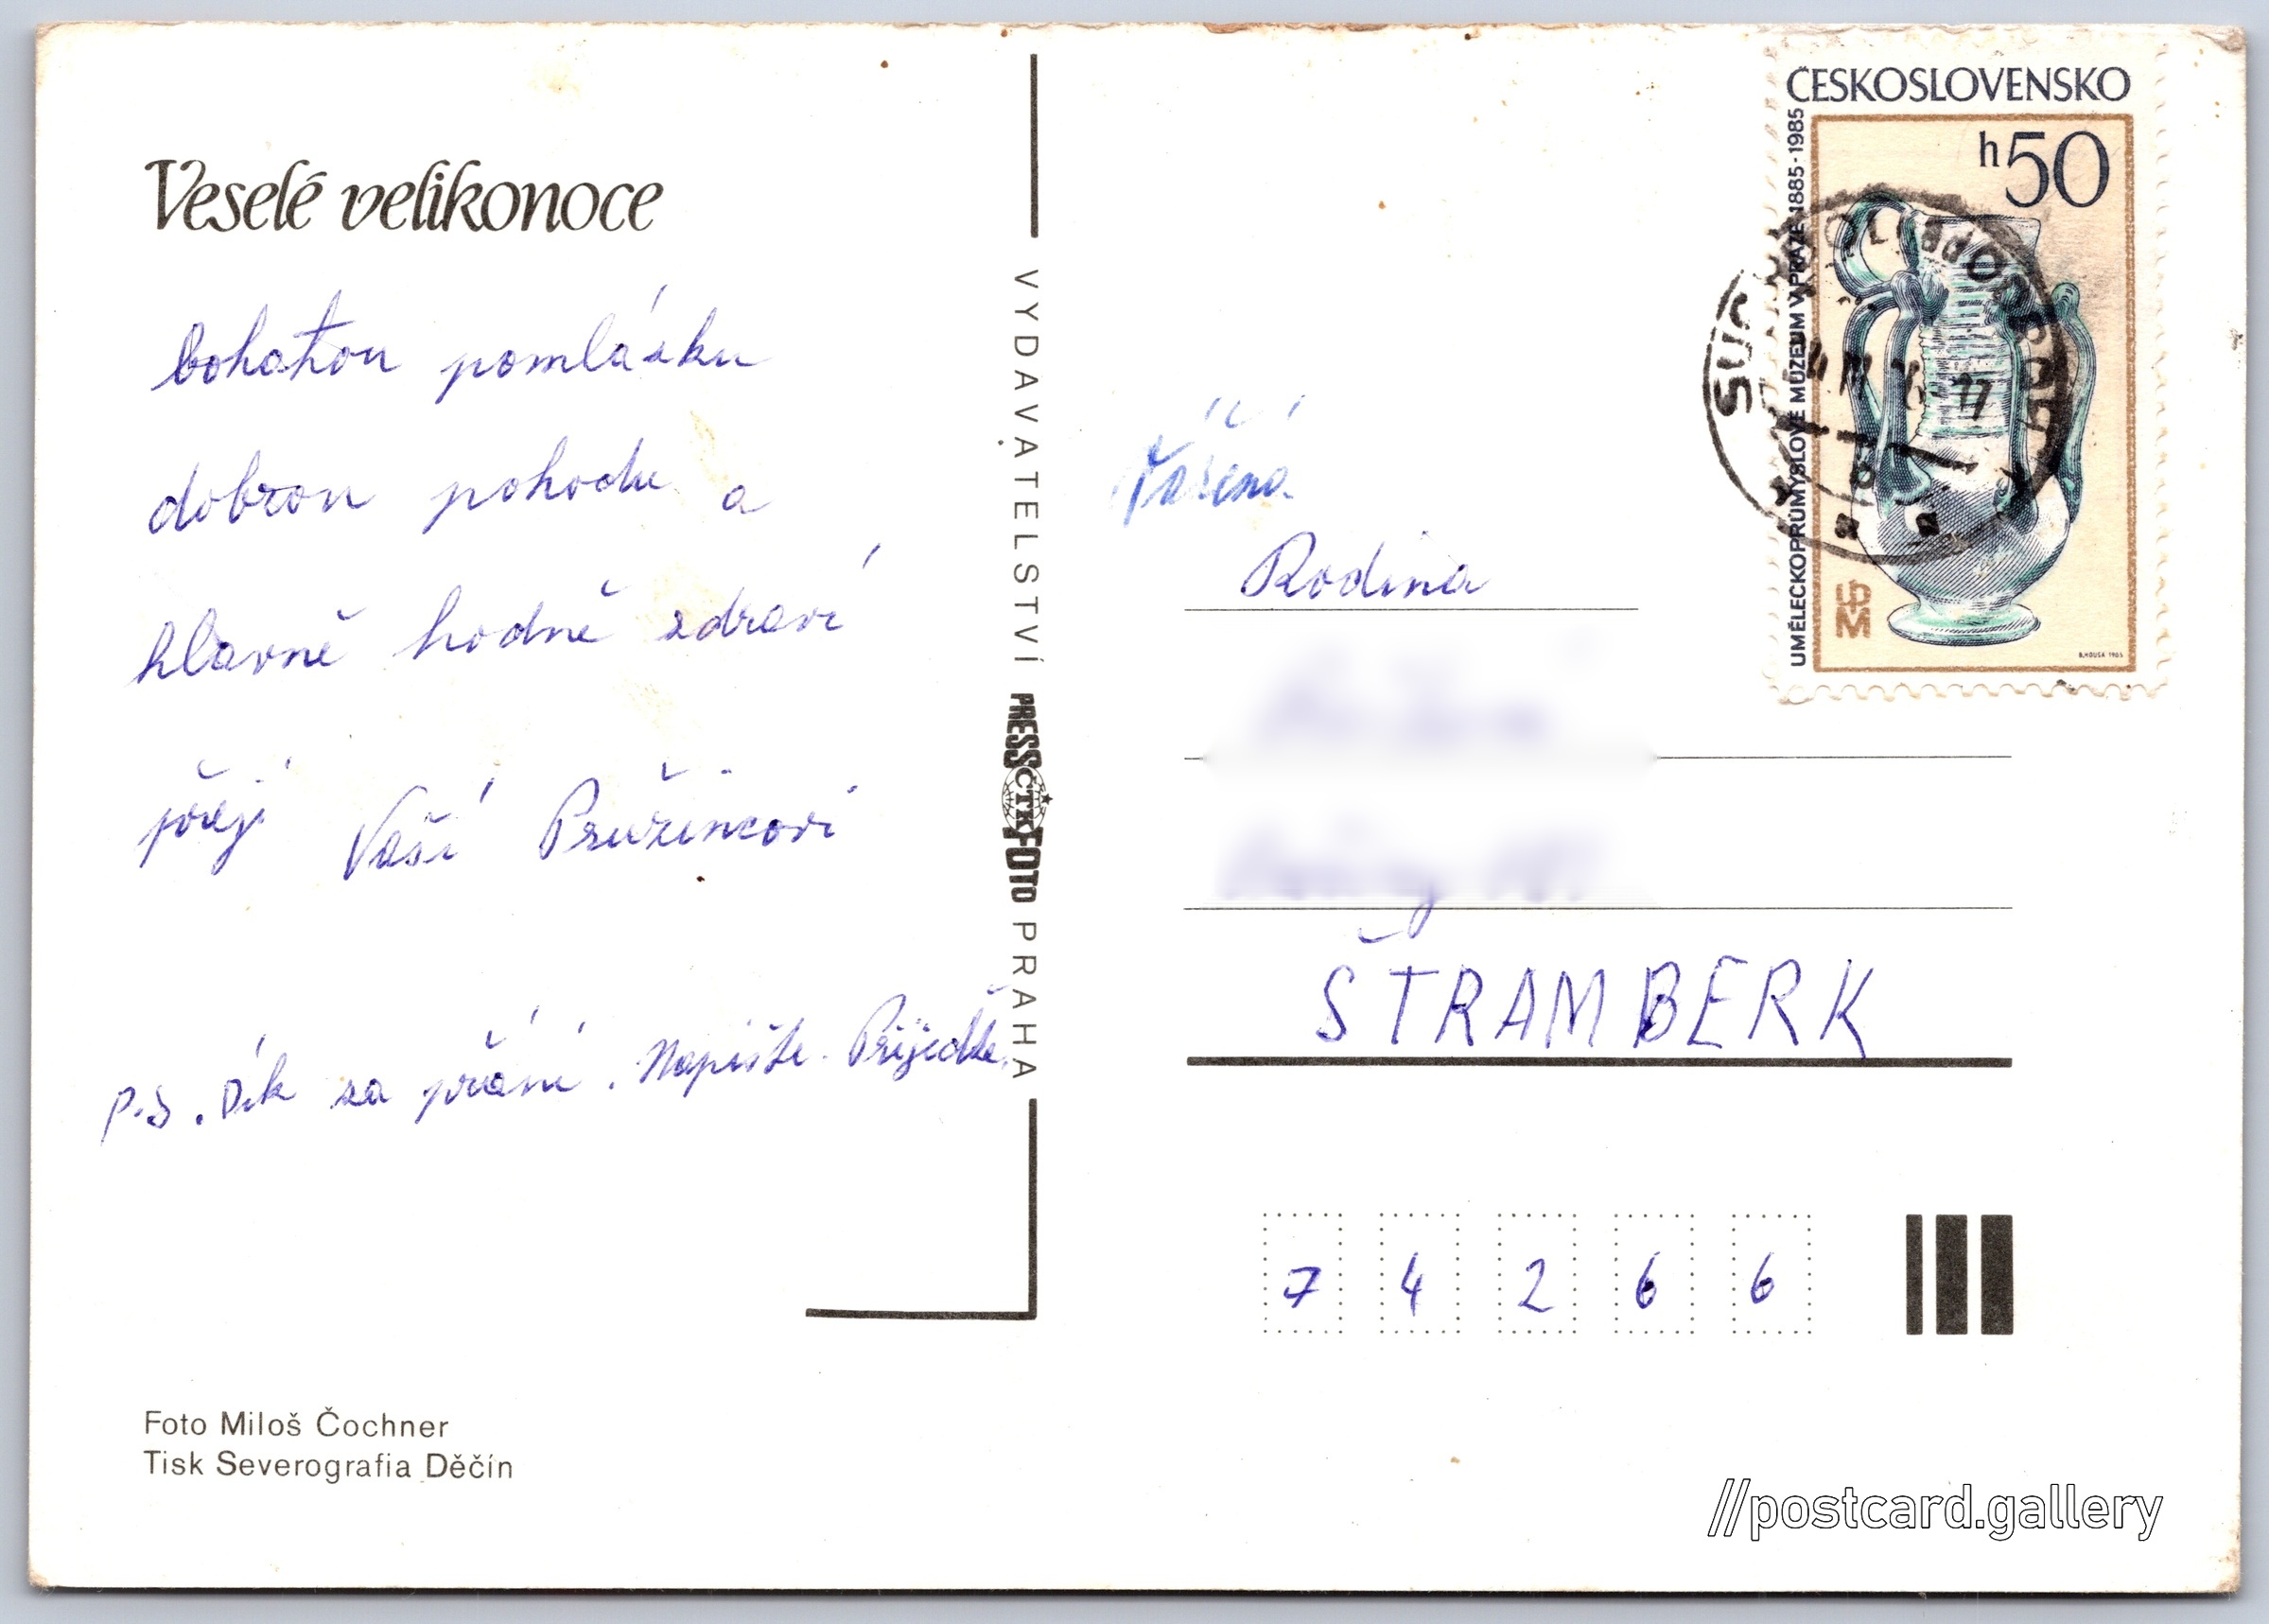 Veselé velikonoce
bohatou pomlázku
dobrou pohodu a
hlavně hodně zdraví
přejí Vaší Pružincovi
P.S. Dík za přání. Napište. Přijedte.
Foto Miloš Čochner
Tisk Severografia Děčín
VYDAVATELSTVÍ PRESSFOTO PRAHA
ČTK
ČESKOSLOVENSKO
h50
UMĚLECKOPRŮMYSLOVÉ MUZEUM V PRAZE 1885-1985
UPM
B.HOUSA 1985
Vážená
Rodina
ŠTRAMBERK
7 4 2 6 6
//postcard.gallery